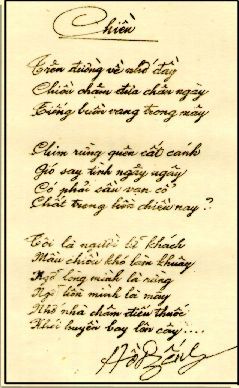 Chiều
Trên đường về nhớ đầy
Chiều chầm đưa chân ngày
Tiếng buồn vang trong mây
Chim rừng quên cất cánh
Gió say tình ngây ngây
Có phải sầu vạn cổ
Chất trong hồn chiều nay?
Tôi là người lữ khách
Màu chiều khó làm khuây
Ngỡ lòng mình là rừng
Ngỡ hồn mình là mây
Nhớ nhà châm điếu thuốc
Khói huyền bay lên cây....
Hồ Dzếnh